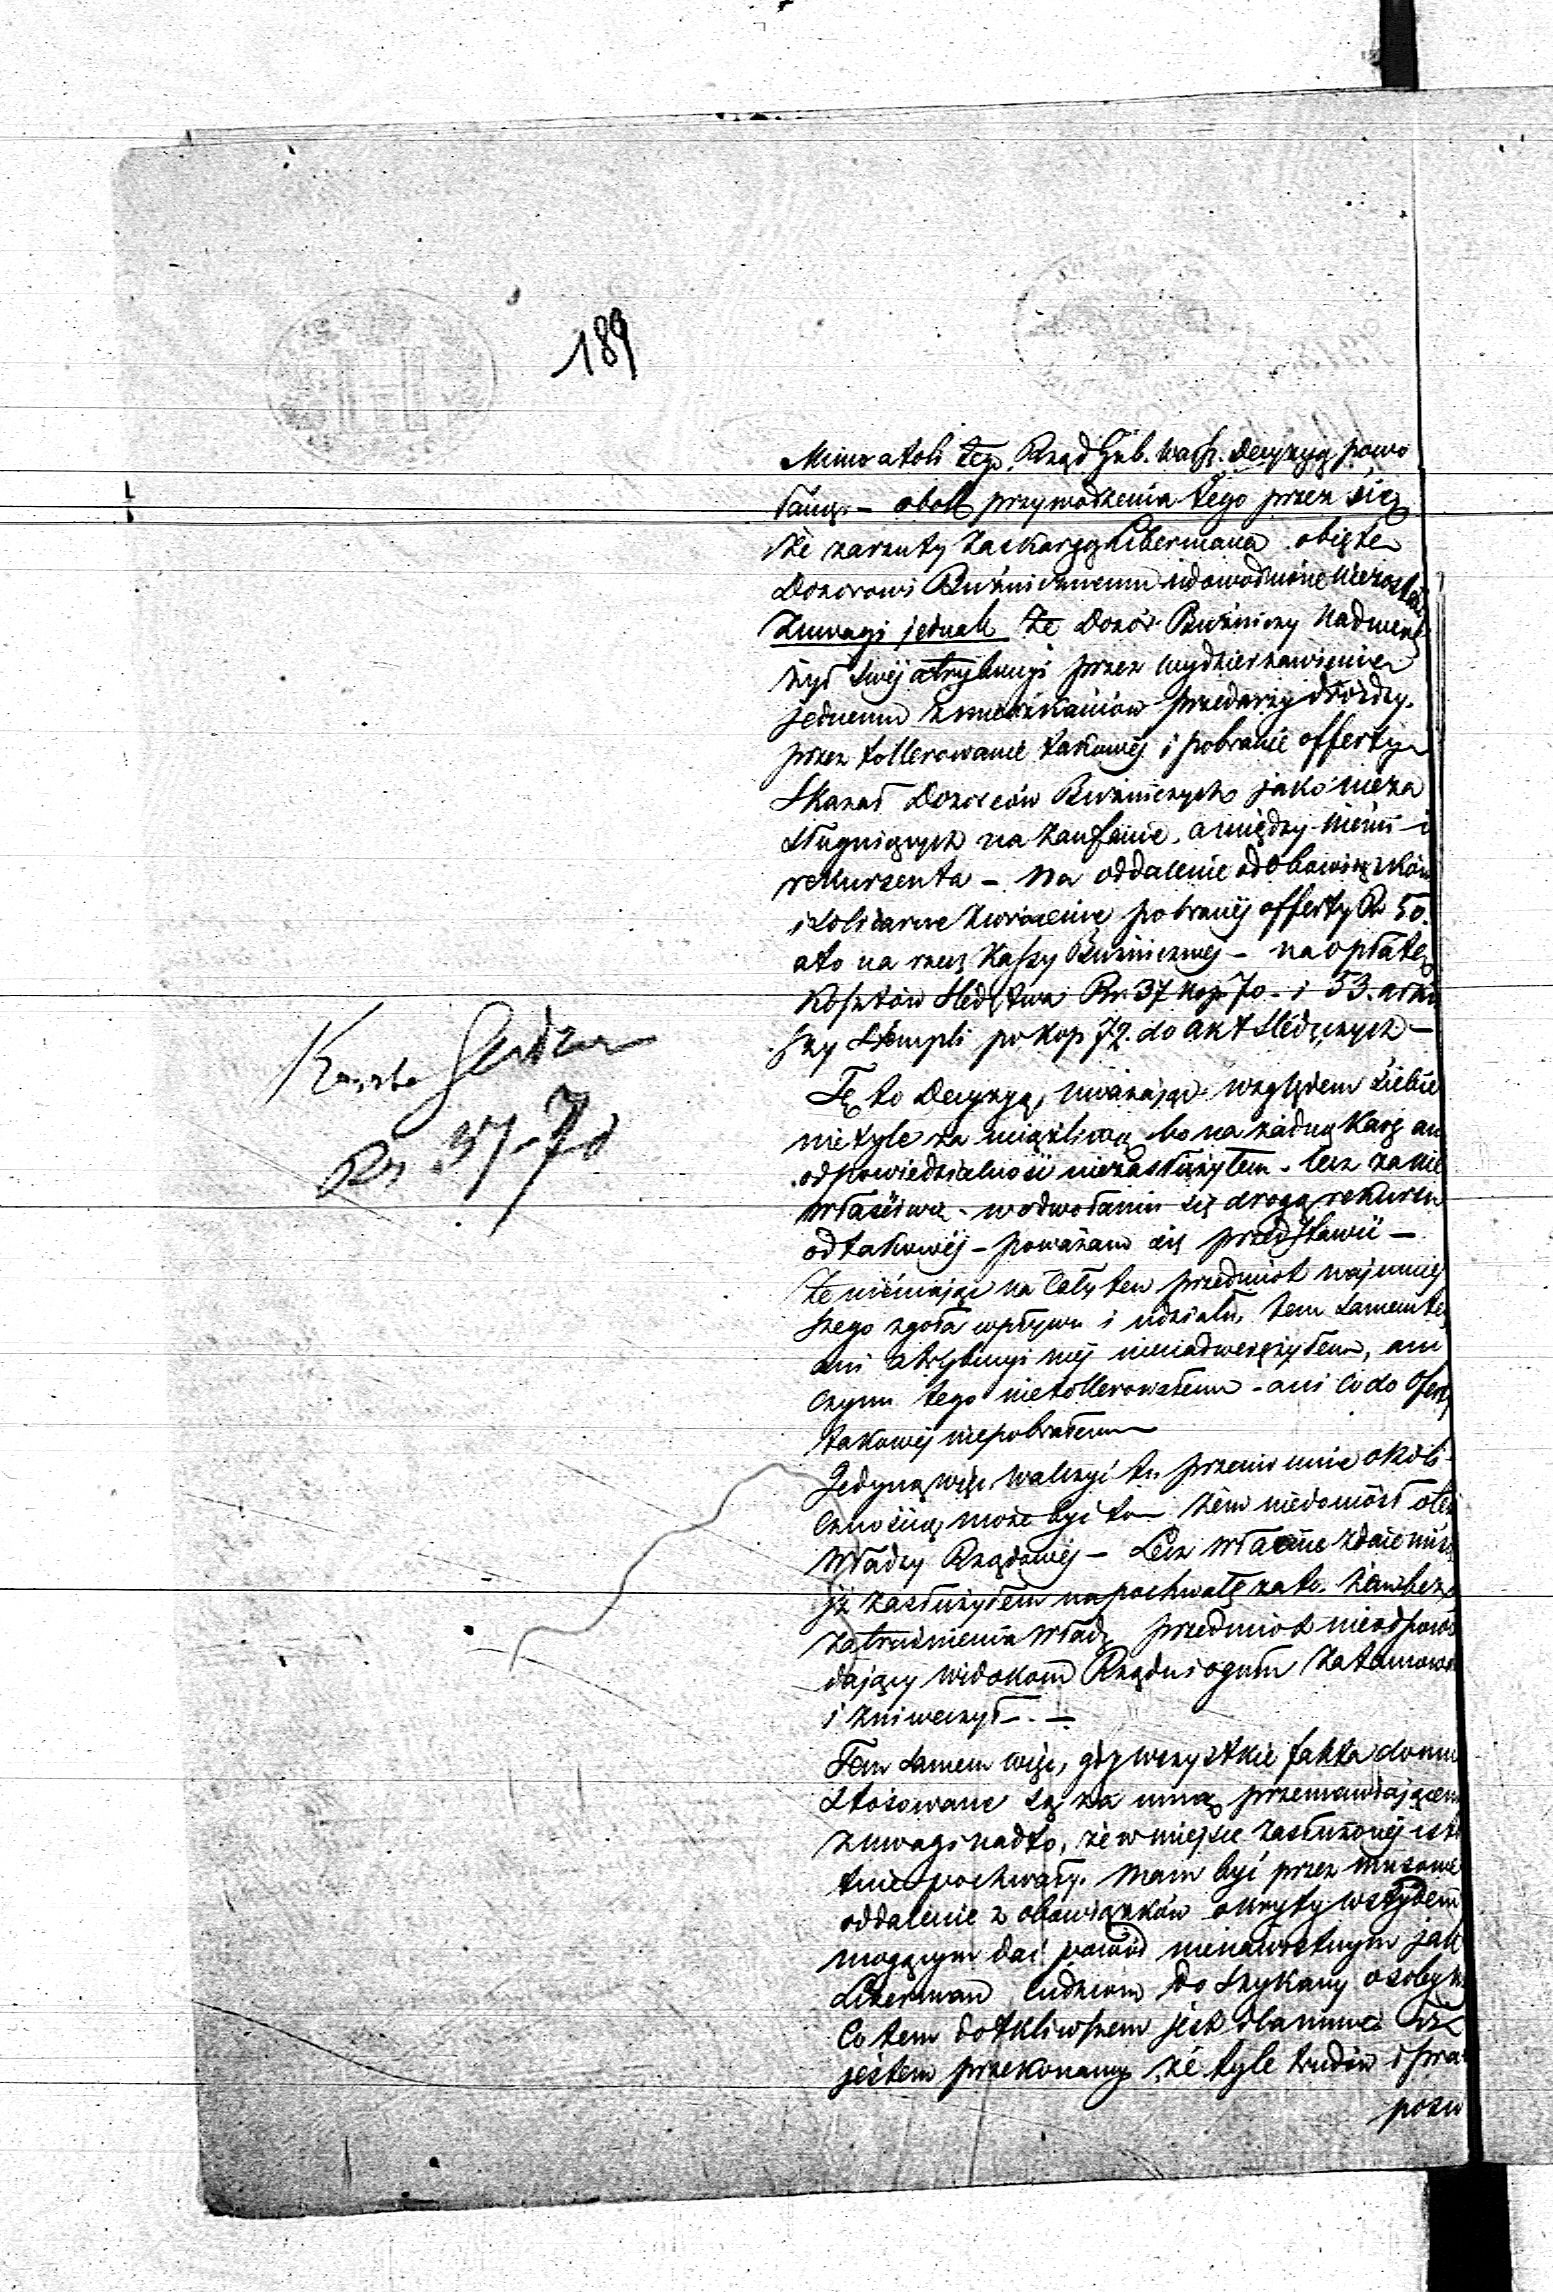 189
Mimo atoli tego Rząd Gub. Warsz. Decyzyą powo
łaną – obok przywodzenia tego przez się
że zarzuty zaskargą Libermana objęte
Dozorowi Bużnicznemu udowodnione
Zuwagi jednak że Dozór Bużniczny nadwerę
żył swej atrybucyi przez wydzierżawienie
jednemu zmieszkańców przedarzy drożdży.
przez tollerowanie takowej i pobranie offerty
Skazał Dozorców Bużnicznych jako nieza
sługujących na zaufanie. a między niemi i
rekursenta – na oddalenie od obowiązków
i solidarne zwrócenie pobranej offerty Rs 50.
a to na rzecz Kassy Bużnicznej – na opłatę
Kosztów Śledztwa Rs. 37 kop. 70 – i 53. arku
szy Stempli po kop 7½. do akt śledczych –
Koszta Śledcze
Rs 37–70
Tę to Decyzyą, uważając względem siebie
nietyle za uciążliwą bo na żadną karę ani
odpowiedzialność niezasłużyłem – lecz za nie
właściwą – wodwołaniu się drogą rekursu
od takowej – poważam się przedstawić –
że niemając na cały ten przedmiot najmniej
szego zgoła wpływu i udziału, tem samem też
ani atrybucyi mej nienadwerężyłem, ani
czynu tego nietollerowałem – ani co do Oferty
takowej niepobrałem
Jedyną więc walczyć tu przeciwmnie okoli
cznością może być to – żem niedoniósł otem
Władzy Rządowej – Lecz właśnie zdaje mi się
iż zasłużyłem na pochwałę za to. żem bez
zatrudnienia Władz przedmiot nieodpowia
dający widokom Rządu i ogółu zatamował
i zniweczył. –
Tem samem więc, gdy wszystkie fakta do mnie
stosowane są za mną przemawiającemi
zuwagi nadto, że w miejsce zasłużonej isto
tnie pochwały. mam być przez musowe
oddalenie z obowiązków okryty wstydem
mogącym dać powód nienawistnym jak
Liberman ludziom do szykany osoby
Co tem dotkliwszem jest dlamnie że
jestem przekonany, że tyle trudów i pra